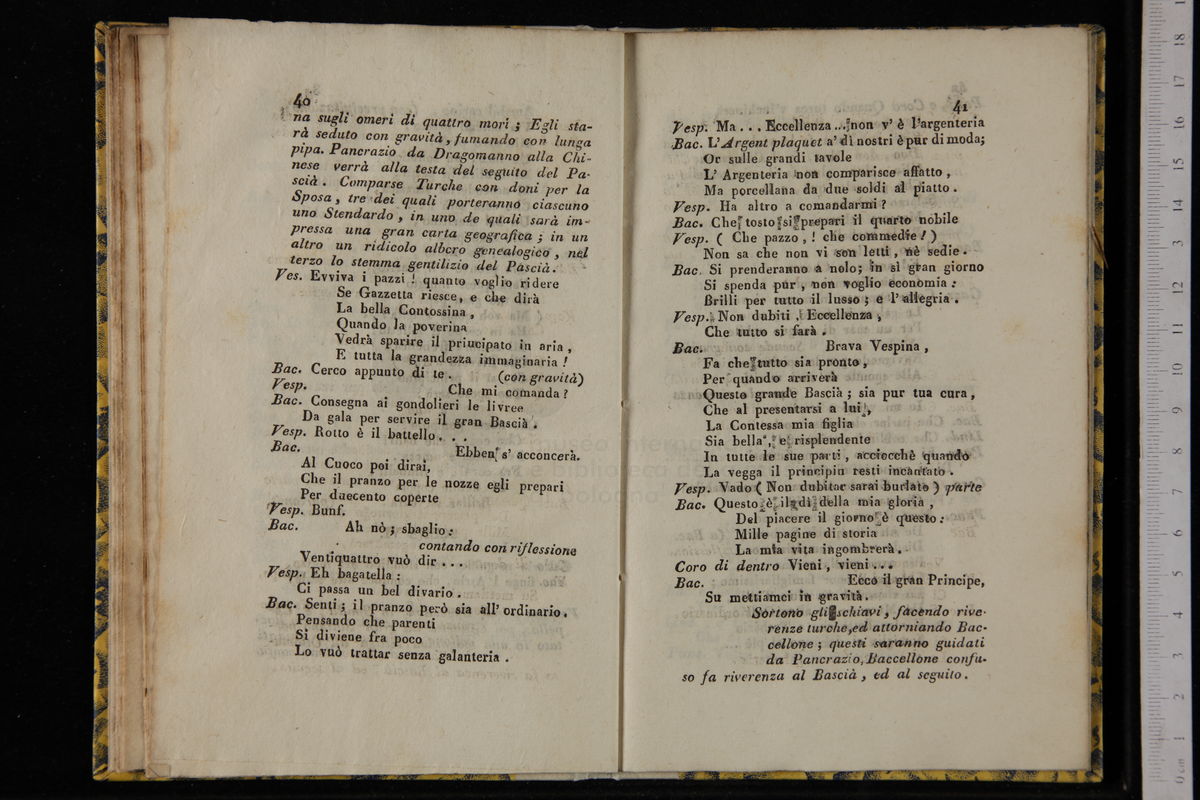 40
na sugli omeri di quattro mori ; Egli sta-
rà seduto con gravità, fumando con lunga
pipa. Pancrazio da Dragomanno alla Chi-
nese verrà alla testa del seguito del Pa-
scià. Comparse Turche con doni per la
Sposa, tre dei quali porteranno ciascuno
uno Stendardo, in uno de quali sarà im-
pressa una gran carta geografica ; in un
altro un ridicolo albero genealogico, nel
terzo lo stemma gentilizio del Pascià.
Ves. Evviva i pazzi ! quanto voglio ridere
Se Gazzetta riesce, e che dirà
La bella Contossina,
Quando la poverina
Vedrà sparire il priucipato in aria,
E tutta la grandezza immaginaria !
Bac. Cerco appunto di te. (con gravità)
Vesp. Che mi comanda ?
Bac. Consegna ai gondolieri le livree
Da gala per servire il gran Bascià.
Vesp. Rotto è il battello. . .
Bac. Ebben s' acconcerà.
Al Cuoco poi dirai,
Che il pranzo per le nozze egli prepari
Per duecento coperte
Vesp. Bunf.
Bac. Ah nò ; sbaglio :
contando con riflessione
Ventiquattro vuò dir . . .
Vesp. Eh bagatella :
Ci passa un bel divario.
Bac. Senti ; il pranzo però sia all' ordinario.
Pensando che parenti
Si diviene fra poco
Lo vuò trattar senza galanteria.
41
Vesp. Ma . . . Eccellenza ... non v' è l'argenteria
Bac. L'Argent plaquet a' dì nostri è pur di moda;
Or sulle grandi tavole
L' Argenteria non comparisce affatto,
Ma porcellana da due soldi al piatto.
Vesp. Ha altro a comandarmi ?
Bac. Che tosto si prepari il quarto nobile
Vesp. ( Che pazzo, ! che commedie ! )
Non sa che non vi son letti, nè sedie.
Bac. Si prenderanno a nolo; in sì gran giorno
Si spenda pur, non voglio economia :
Brilli per tutto il lusso ; e l' allegria.
Vesp. Non dubiti, Eccellenza,
Che tutto si farà.
Bac. Brava Vespina,
Fa che tutto sia pronto,
Per quando arriverà
Questo grande Bascià ; sia pur tua cura,
Che al presentarsi a lui,
La Contessa mia figlia
Sia bella, e risplendente
In tutte le sue parti, acciocchè quando
La vegga il principin resti incantato.
Vesp. Vado ( Non dubitar sarai burlato ) parte
Bac. Questo è il dì della mia gloria,
Del piacere il giorno è questo :
Mille pagine di storia
La mia vita ingombrerà.
Coro di dentro Vieni, vieni ...
Bac. Ecco il gran Principe,
Su mettiamci in gravità.
Sortono gli schiavi, facendo rive-
renze turche, ed attorniando Bac-
cellone ; questi saranno guidati
da Pancrazio, Baccellone confu-
so fa riverenza al Bascià, ed al seguito.